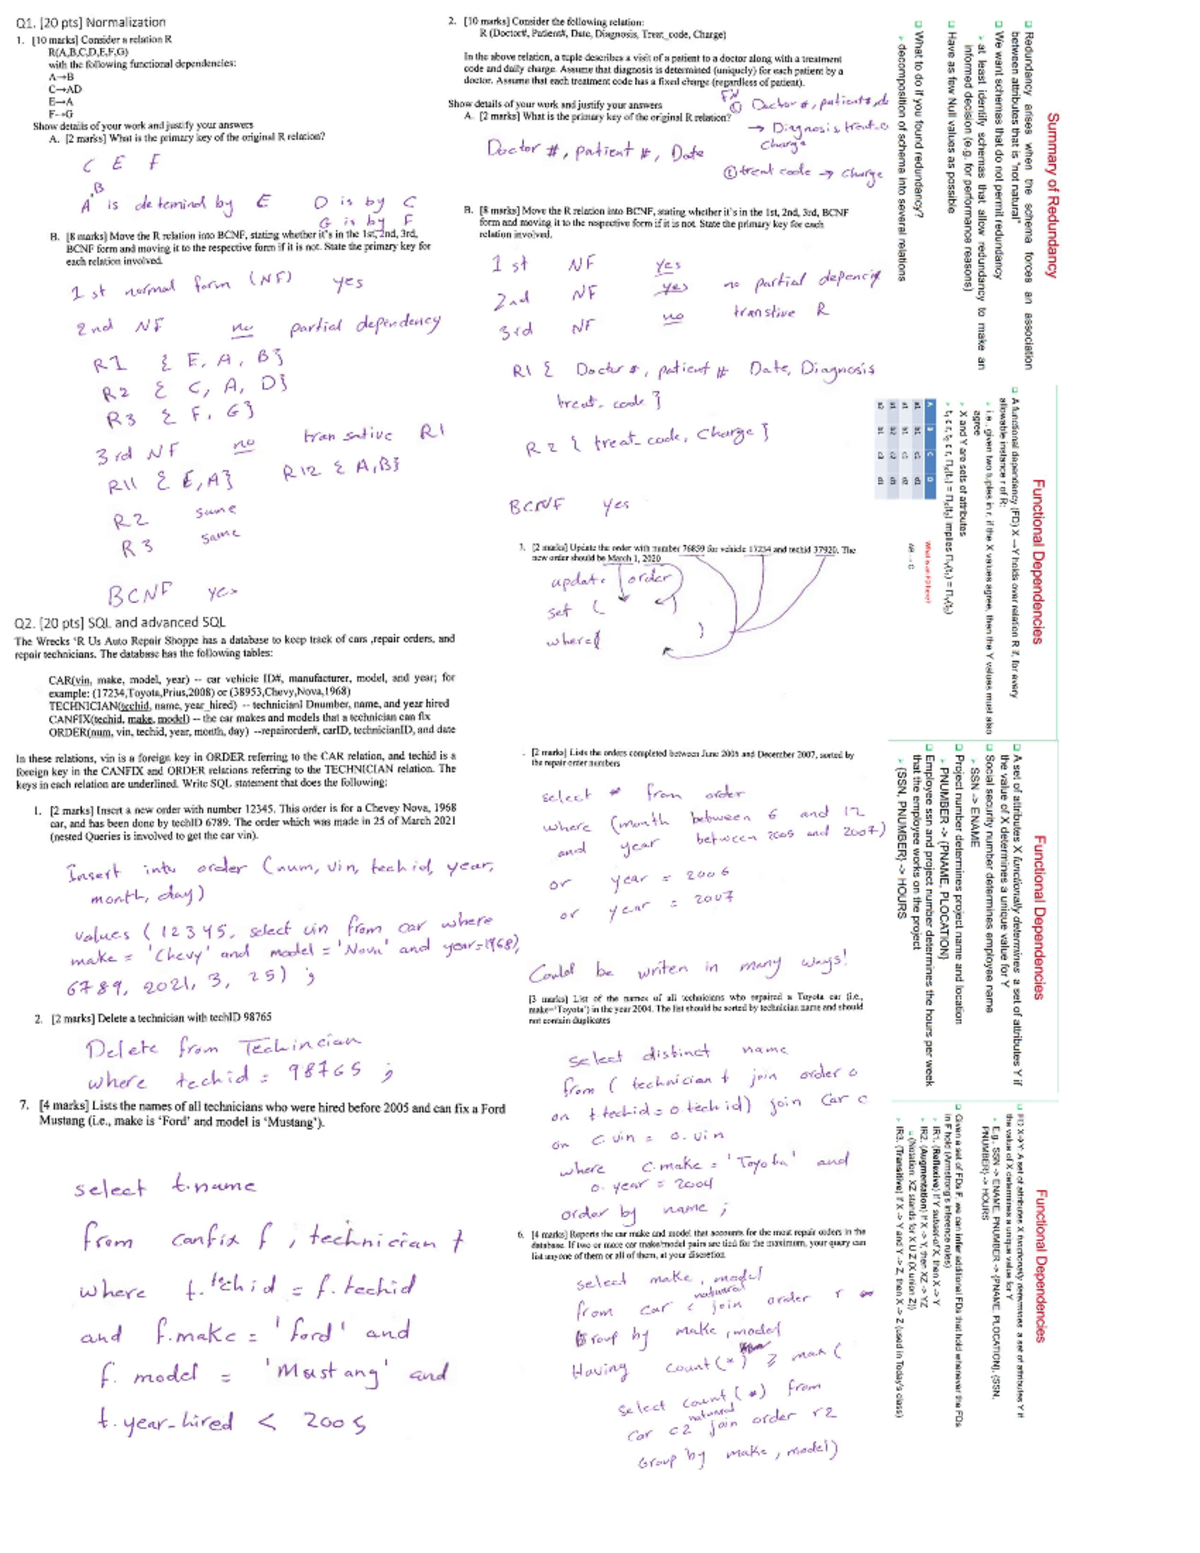 Q1. [20 pts] Normalization
1. [10 marks] Consider a relation R
R(A,B,C,D,E,F,G)
with the following functional dependencies:
A→B
C→AD
E→A
F→G
Show details of your work and justify your answers
A. [2 marks] What is the primary key of the original R relation?
C E F
B
A is detemind by E D is by C
G is by F
B. [8 marks] Move the R relation into BCNF, stating whether it's in the 1st, 2nd, 3rd,
BCNF form and moving it to the respective form if it is not. State the primary key for
each relation involved.
1 st normal form (NF) yes
2nd NF no partial dependency
R1 { E, A, B}
R2 { C, A, D}
R3 { F, G}
3rd NF no transative R1
R11 { E, A} R12 { A, B}
R2 same
R3 same
BCNF yes
Q2. [20 pts] SQL and advanced SQL
The Wrecks 'R Us Auto Repair Shoppe has a database to keep track of cars ,repair orders, and
repair technicians. The database has the following tables:
CAR(vin, make, model, year) -- car vehicle ID#, manufacturer, model, and year; for
example: (17234,Toyota,Prius,2008) or (38953,Chevy,Nova,1968)
TECHNICIAN(techid, name, year_hired) -- technicianI Dnumber, name, and year hired
CANFIX(techid, make, model) -- the car makes and models that a technician can fix
ORDER(num, vin, techid, year, month, day) --repairorder#, carID, technicianID, and date
In these relations, vin is a foreign key in ORDER referring to the CAR relation, and techid is a
foreign key in the CANFIX and ORDER relations referring to the TECHNICIAN relation. The
keys in each relation are underlined. Write SQL statement that does the following:
1. [2 marks] Insert a new order with number 12345. This order is for a Chevey Nova, 1968
car, and has been done by techID 6789. The order which was made in 25 of March 2021
(nested Queries is involved to get the car vin).
Insert into order (num, vin, techid, year,
month, day)
values (12345, select vin from car where
make = 'Chevy' and model = 'Nova' and year=1968),
6789, 2021, 3, 25) ;
2. [2 marks] Delete a technician with techID 98765
Delete from Techincian
where techid = 98765 ;
7. [4 marks] Lists the names of all technicians who were hired before 2005 and can fix a Ford
Mustang (i.e., make is 'Ford' and model is 'Mustang').
select t.name
from canfix f , technician t
where t.techid = f.techid
and f.make = 'ford' and
f. model = 'Mustang' and
t.year-hired < 2005
2. [10 marks] Consider the following relation:
R (Doctor#, Patient#, Date, Diagnosis, Treat_code, Charge)
In the above relation, a tuple describes a visit of a patient to a doctor along with a treatment
code and daily charge. Assume that diagnosis is determined (uniquely) for each patient by a
doctor. Assume that each treatment code has a fixed charge (regardless of patient).
Show details of your work and justify your answers
A. [2 marks] What is the primary key of the original R relation?
① Doctor #, patient #, d
→ Diagnosis treat-c
Charge
Doctor #, patient #, Date
② treat code → charge
B. [8 marks] Move the R relation into BCNF, stating whether it's in the 1st, 2nd, 3rd, BCNF
form and moving it to the respective form if it is not. State the primary key for each
relation involved.
1 st NF yes
2nd NF yes no partial depency
3rd NF no transtive R
R1 { Doctor #, patient # Date, Diagnosis
treat. code }
R2 { treat_code, Charge }
BCNF yes
3. [2 marks] Update the order with number 76859 for vehicle 17234 and techid 37920. The
new order should be March 1, 2020
update order
set (
)
where
[2 marks] Lists the orders completed between June 2005 and December 2007, sorted by
the repair order numbers
select * from order
where (month between 6 and 12
and year between 2005 and 2007)
or year = 2006
or year = 2007
Could be writen in many ways!
[3 marks] List of the names of all technicians who repaired a Toyota car (i.e.,
make='Toyota') in the year 2004. The list should be sorted by technician name and should
not contain duplicates
select distinct name
from ( technician t join order o
on t.techid = o.techid) join Car c
on c.vin = o.vin
where c.make = 'Toyota' and
o.year = 2004
order by name ;
6. [4 marks] Reports the car make and model that accounts for the most repair orders in the
database. If two or more car make/model pairs are tied for the maximum, your query can
list any one of them or all of them, at your discretion
select make, model
from car c natural join order r
Group by make, model
Having count(*) ≥ max (
select count(*) from
Car c2 natural join order r2
Group by make, model)
Summary of Redundancy
Redundancy arises when the schema forces an association
between attributes that is "not natural"
We want schemas that do not permit redundancy
at least identify schemas that allow redundancy to make an
informed decision (e.g. for performance reasons)
Have as few Null values as possible
What to do if you found redundancy?
decomposition of schema into several relations
Functional Dependencies
A functional dependency (FD) X→Y holds over relation R if, for every
allowable instance r of R:
i.e., given two tuples in r, if the X values agree, then the Y values must also
agree
X and Y are sets of attributes
t1 ∈ r, t2 ∈ r, ΠX(t1) = ΠX(t2) implies ΠY(t1) = ΠY(t2)
A B C D
a1 b1 c1 d1
a1 b1 c1 d2
a1 b2 c2 d1
a2 b1 c3 d1
AB → C
Functional Dependencies
A set of attributes X functionally determines a set of attributes Y if
the value of X determines a unique value for Y
Social security number determines employee name
SSN -> ENAME
Project number determines project name and location
PNUMBER -> {PNAME, PLOCATION}
Employee ssn and project number determines the hours per week
that the employee works on the project
{SSN, PNUMBER} -> HOURS
Functional Dependencies
FD X->Y: A set of attributes X functionally determines a set of attributes Y if
the value of X determines a unique value for Y
E.g. SSN -> ENAME, PNUMBER -> {PNAME, PLOCATION}, {SSN,
PNUMBER} -> HOURS
Given a set of FDs F, we can infer additional FDs that hold whenever the FDs
in F hold (Armstrong's inference rules)
IR1. (Reflexive) If Y subset-of X, then X -> Y
IR2. (Augmentation) If X -> Y, then XZ -> YZ
(Notation: XZ stands for X U Z (X union Z))
IR3. (Transitive) If X -> Y and Y -> Z, then X -> Z (used in Today's class)